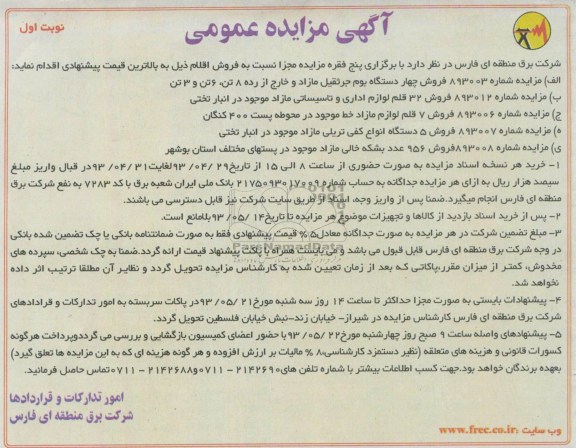 آگهی مزایده عمومی
نوبت اول
شرکت برق منطقه ای فارس در نظر دارد با برگزاری پنج فقره مزایده مجزا نسبت به فروش اقلام ذیل به بالاترین قیمت پیشنهادی اقدام نماید:
الف) مزایده شماره ۸۹۳۰۰۳ فروش چهار دستگاه بوم جرثقیل مازاد و خارج از رده ۸ تن، ۶تن و ۳ تن
ب) مزایده شماره ۸۹۳۰۱۲ فروش ۳۲ قلم لوازم اداری و تاسیساتی مازاد موجود در انبار تختی
ج) مزایده شماره ۸۹۳۰۰۶ فروش ۷ قلم لوازم مازاد خط موجود در محوطه پست ۴۰۰ کنگان
ه) مزایده شماره ۸۹۳۰۰۷ فروش ۵ دستگاه انواع کفی تریلی مازاد موجود در انبار تختی
ی) مزایده شماره ۸۹۳۰۰۸فروش ۹۵۶ عدد بشکه خالی مازاد موجود در پستهای مختلف استان بوشهر
۱- خرید هر نسخه اسناد مزایده به صورت حضوری از ساعت ۸ الی ۱۵ از تاریخ۲۹/ ۰۴/ ۹۳ لغایت۳۱/ ۰۴/ ۹۳ در قبال واریز مبلغ
سیصد هزار ریال به ازای هر مزایده جداگانه به حساب شماره ۲۱۷۵۰۹۳۰۱۷۰۰۹ بانک ملی ایران شعبه برق با کد ۷۲۸۳ به نفع شرکت برق
منطقه ای فارس انجام میگیرد.ضمنا پس از واریز وجه، اسناد از طریق سایت شرکت نیز قابل دسترسی می باشند.
۲- پس از خرید اسناد بازدید از کالاها و تجهیزات موضوع هر مزایده تا تاریخ۱۴/ ۰۵/ ۹۳ بلامانع است.
۳- مبلغ تضمین شرکت در هر مزایده به صورت جداگانه معادل۵% قیمت پیشنهادی فقط به صورت ضمانتنامه بانکی یا چک تضمین شده بانکی
در وجه شرکت برق منطقه ای فارس قابل قبول می باشد و می بایست همراه با پاکت پیشنهاد قیمت ارائه گردد.ضمنا به چک شخصی، سپرده های
مخدوش، کمتر از میزان مقرر،پاکاتی که بعد از زمان تعیین شده به کارشناس مزایده تحویل گردد و نظایر آن مطلقا ترتیب اثر داده
نخواهد شد.
۴- پیشنهادات بایستی به صورت مجزا حداکثر تا ساعت ۱۴ روز سه شنبه مورخ۲۱/ ۰۵/ ۹۳ در پاکات سربسته به امور تدارکات و قرادادهای
شرکت برق منطقه ای فارس کارشناس مزایده در شیراز- خیابان زند-نبش خیابان فلسطین تحویل گردد.
۵- پیشنهادهای واصله ساعت ۹ صبح روز چهارشنبه مورخ۲۲/ ۰۵/ ۹۳ با حضور اعضای کمیسیون بازگشایی و بررسی می گرددوپرداخت هرگونه
کسورات قانونی و هزینه های متعلقه (نظیر دستمزد کارشناسی،۸ % مالیات بر ارزش افزوده و هر گونه هزینه ای که به این مزایده ها تعلق گیرد)
بعهده برندگان خواهد بود.جهت کسب اطلاعات بیشتر با شماره تلفن های۲۱۴۲۶۹۰ - ۰۷۱۱ و۲۱۴۲۶۸۸ - ۰۷۱۱ تماس حاصل فرمائید.
امور تدارکات و قراردادها
شرکت برق منطقه ای فارس
وب سایت :www.frec.co.ir